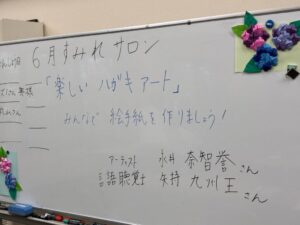 6月すみれサロン
「楽しいハガキアート」
みんなで 絵手紙を作りましょう!
アーティスト 永井 奈智誉さん
言語聴覚士 矢持 九州王さん